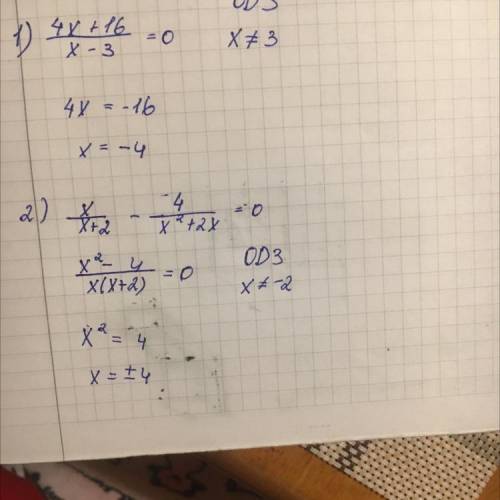 ОДЗ
1) (4x + 16)/(x - 3) = 0   x ≠ 3
4x = -16
x = -4
2) x/(x+2) - 4/(x²+2x) = 0
(x² - 4)/(x(x+2)) = 0   ОДЗ
x ≠ -2
x² = 4
x = ±4